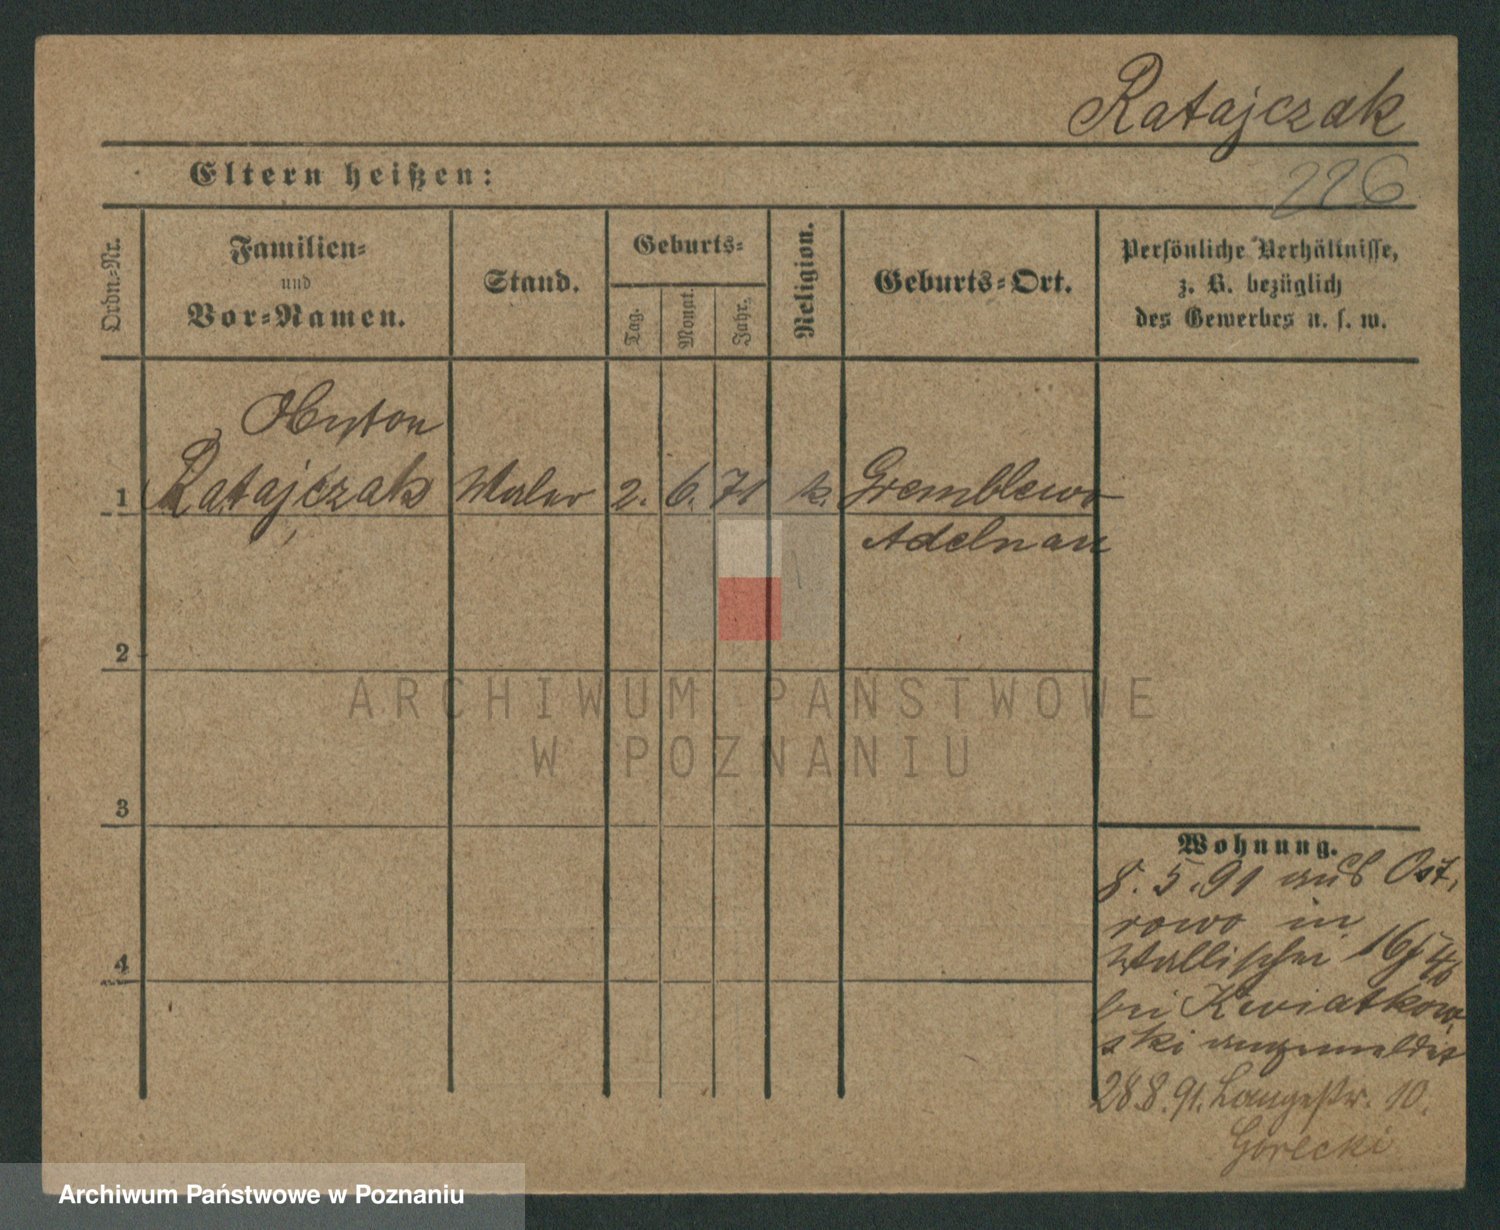 Ratajczak
Eltern heißen:
226
Ordn=Nr.
Familien=
und
Vor=Namen.
Stand.
Geburts=
Tag.
Monat.
Jahr.
Religion.
Geburts=Ort.
Persönliche Verhältnisse,
z. B. bezüglich
des Gewerbes u. s. w.
Anton
1 Ratajczak Maler 2. 6. 71 k. Gremblewo
Adelnau
2
3
4
Wohnung.
8. 5. 91 aus Ost,
rowo in
Wallischei 16/
bei Kwiatkow,
ski angemeldet
28.8.91. Langestr. 10.
Gorecki
ARCHIWUM PAŃSTWOWE
W POZNANIU
Archiwum Państwowe w Poznaniu